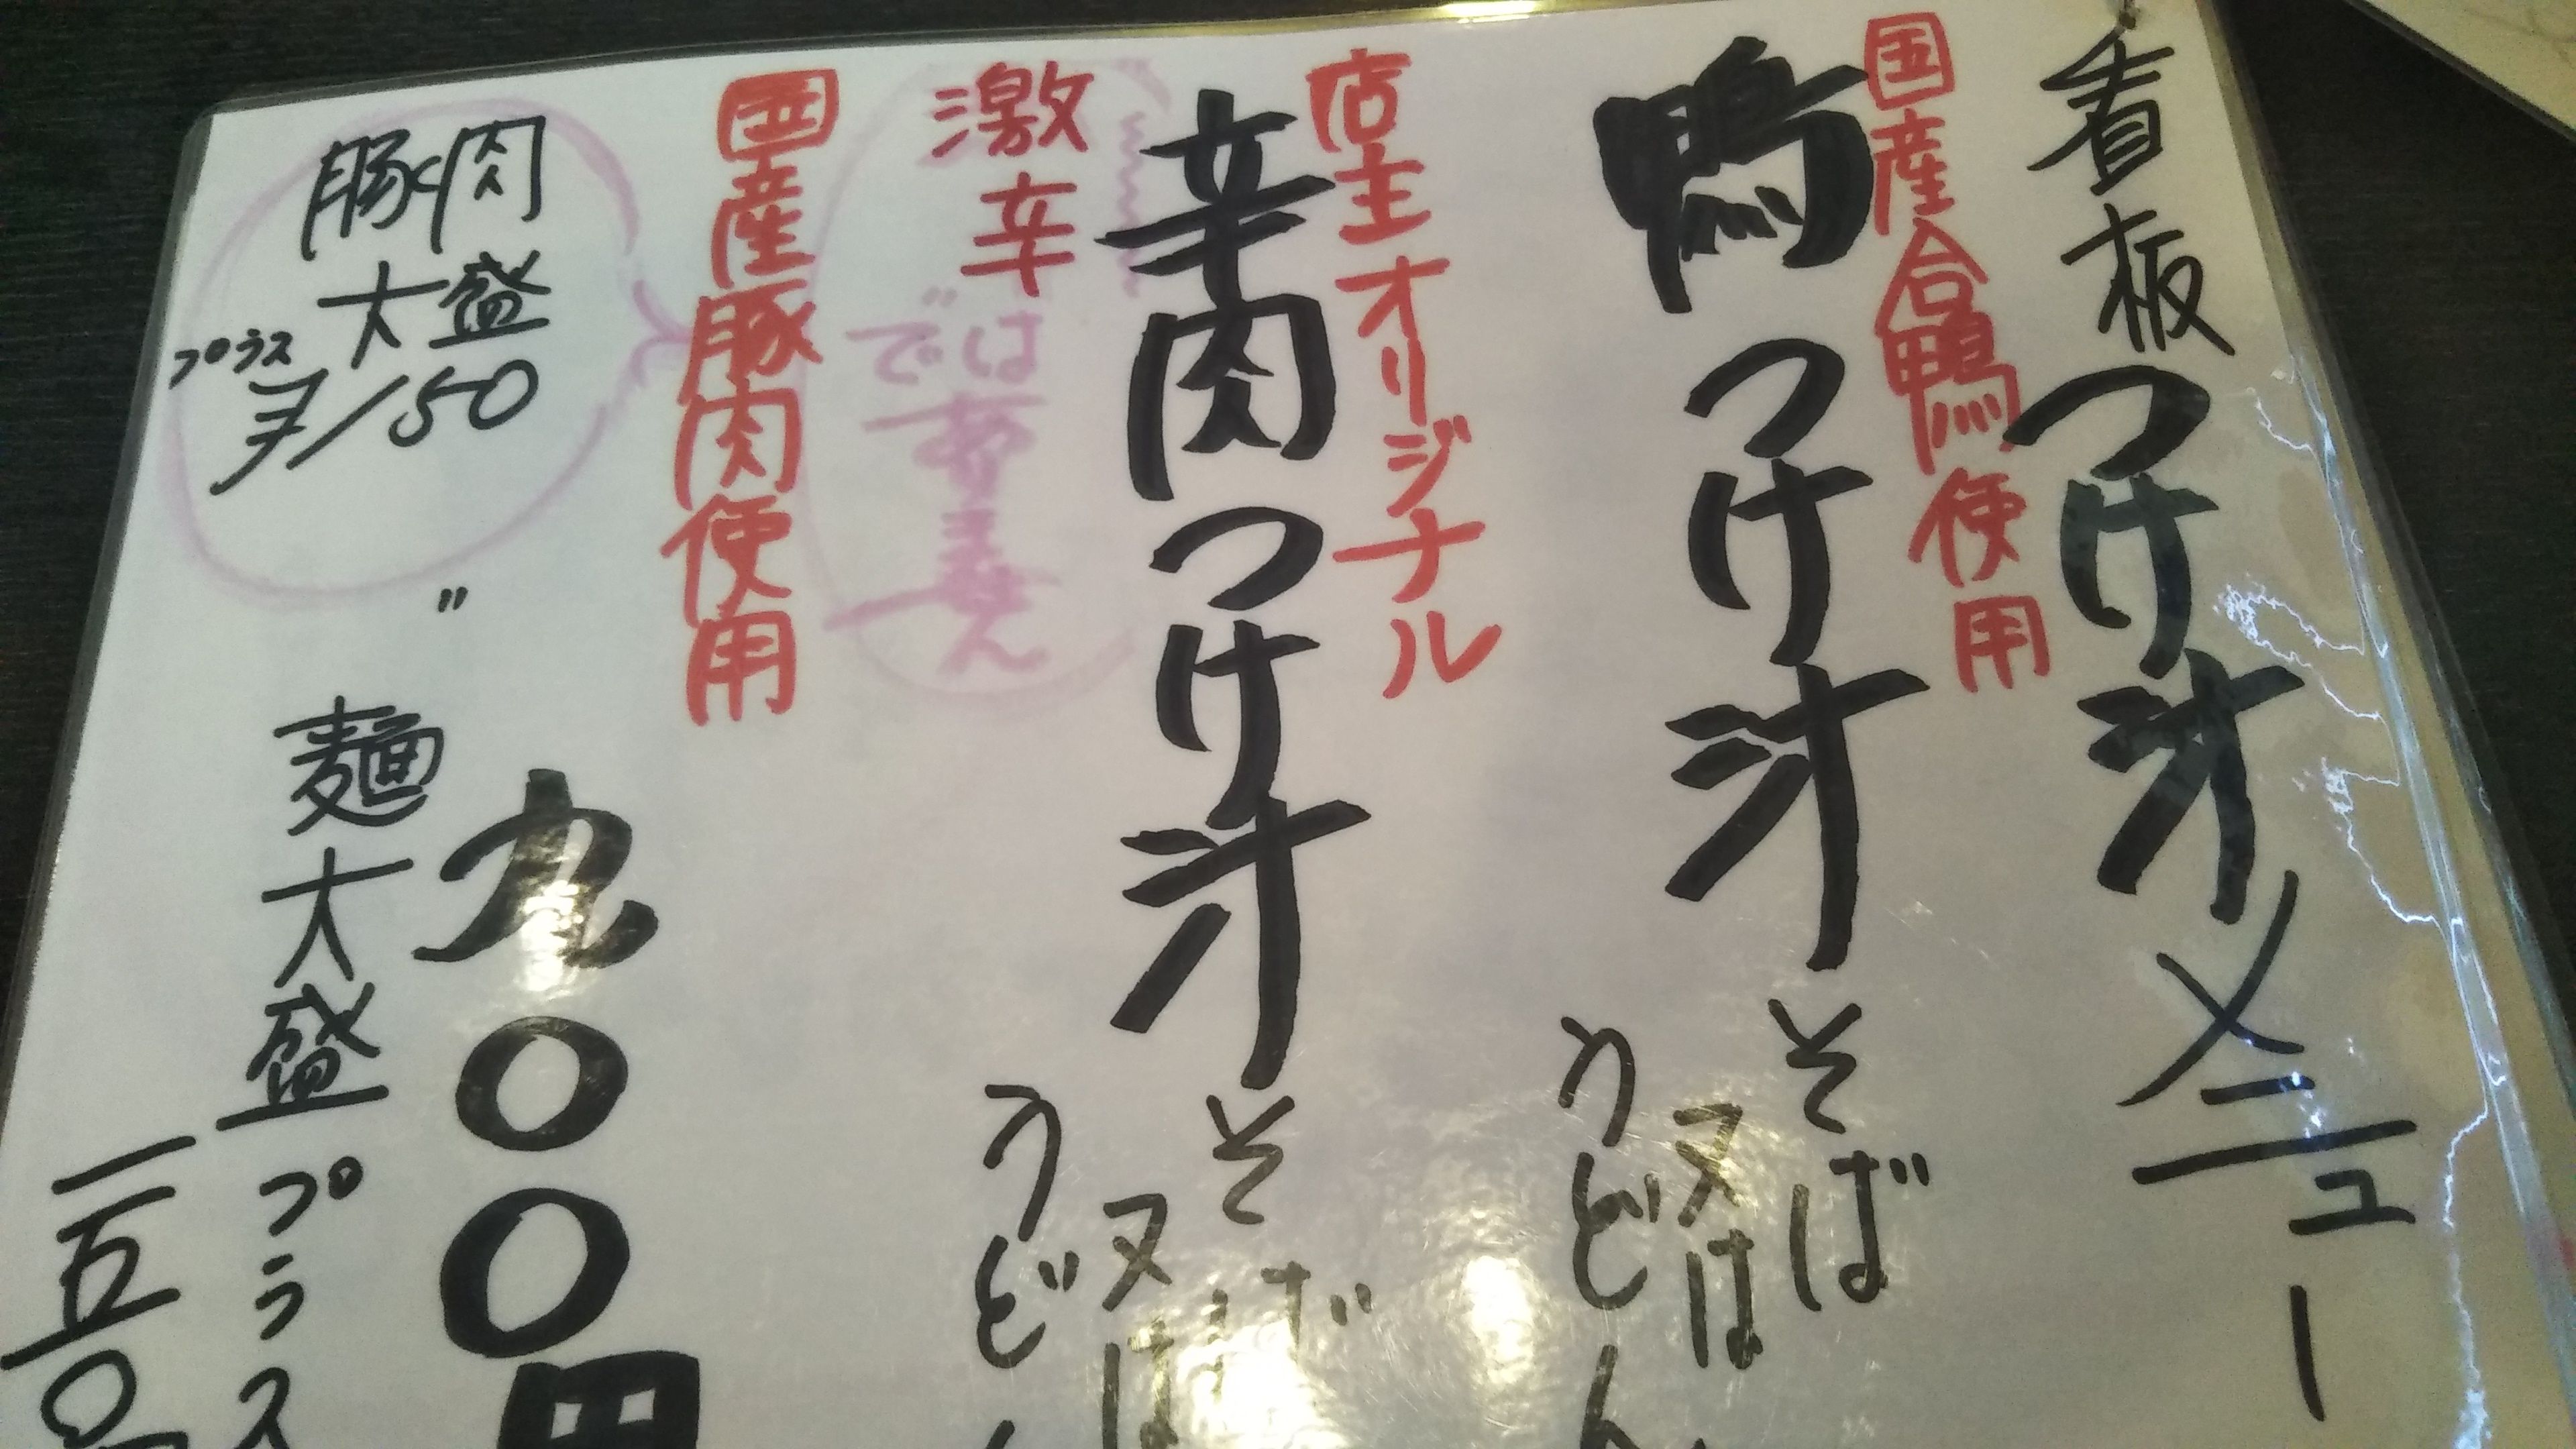 看板つけ汁メニュー
国産合鴨使用
鴨つけ汁
そば
又は
うどん
店主オリジナル
辛肉つけ汁
そば
又は
うどん
激辛
ではありません
国産豚肉使用
九〇〇円
豚肉
大盛
プラス
¥150
〃
麺大盛
プラス
一五〇